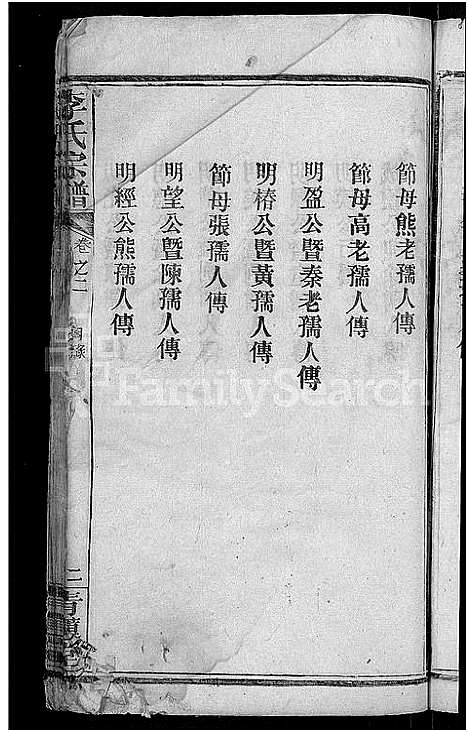 節母熊老孺人傳
節母高老孺人傳
明盈公暨秦老孺人傳
明椿公暨黃孺人傳
節母張孺人傳
明望公暨陳孺人傳
明經公熊孺人傳
李氏宗譜
卷之二
目錄
二
FamilySearch